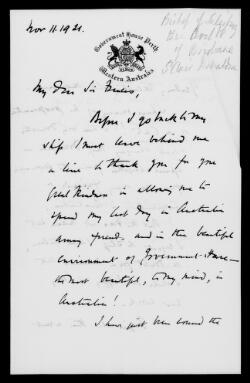 Nov 11. 1921.
Government House Perth
Western Australia
My Dear Sir Francis,
Before I go back to my
ship I must leave behind me
a line to thank you for your
great kindness in allowing me to
spend my last day in Australia
among friends, and in the beautiful
environment of Government House —
the most beautiful, to my mind, in
Australia!
I have just been round the